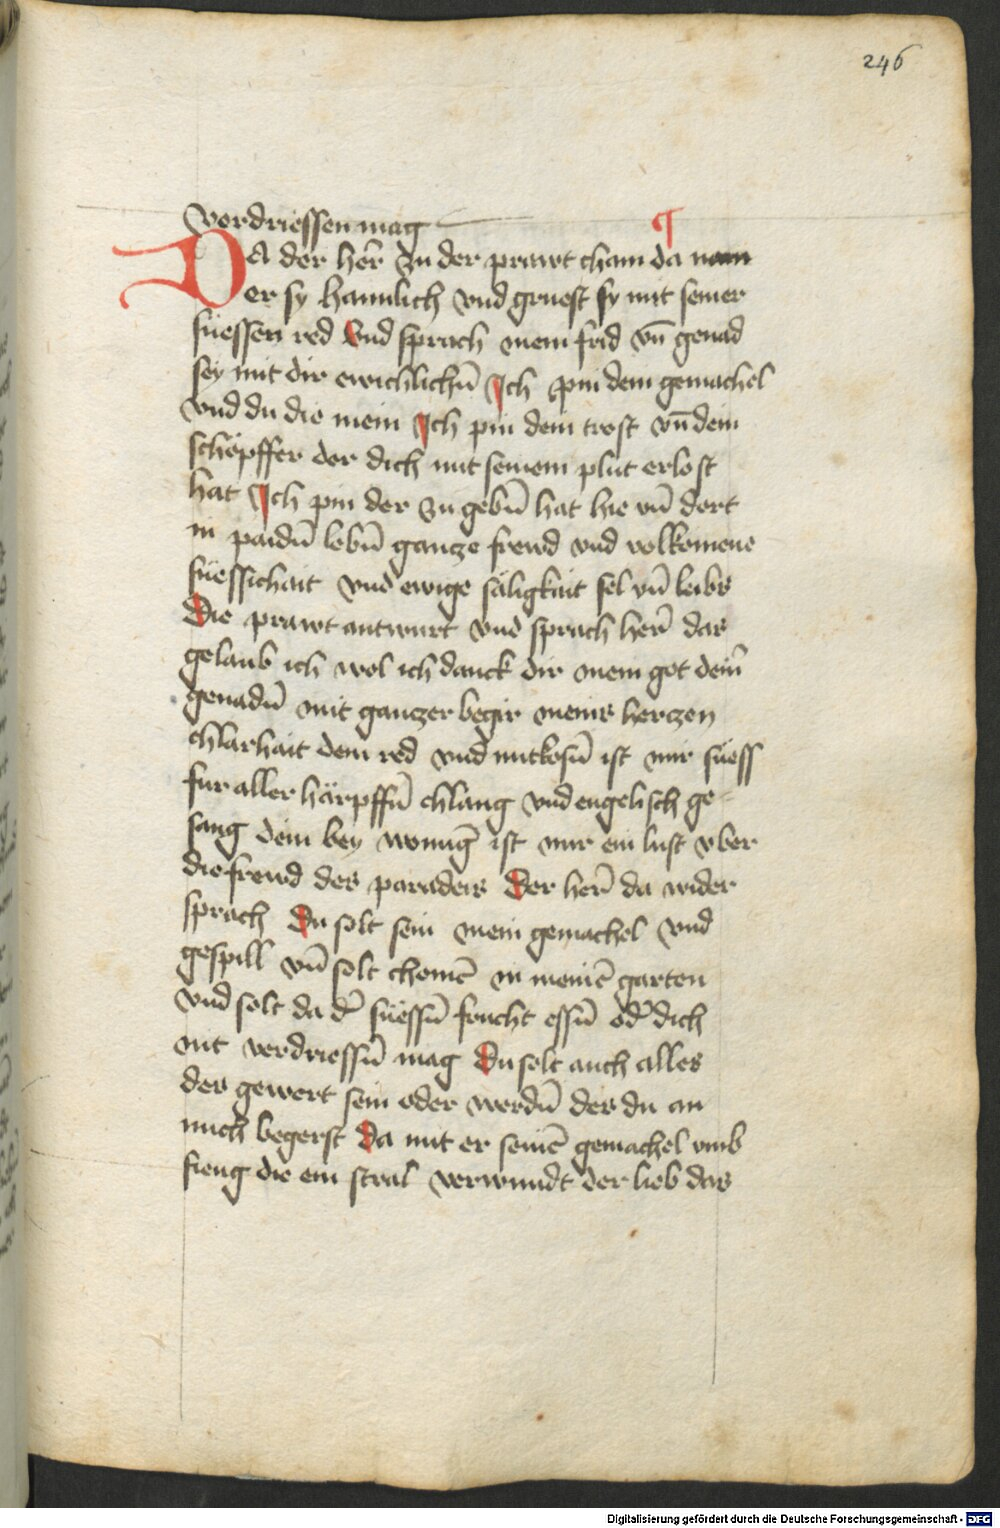 246
verdriessen mag ¶
DA der her̄ zu der prawt cham da nam
er sy haimlich vnd gruest sy mit seiner
süessen red vnd sprach mein frid vn̄ genad
sey mit dir ewichlichn̄ Ich pin dein gemachel
vnd du die mein Ich pin dein trost vn̄ dein
schöpffer der dich mit seinem plut erlost
hat Ich pin der zu gebn̄ hat hie vn̄ dort
in paidn̄ lebn̄ gancze frewd vnd volkomene
süessichait vnd ewige säligkait sel vn̄ leibs
Die prawt antwurt vnd sprach her̄ das
gelaub ich wol ich danck dir mein got dein̄
genadn̄ mit ganczer begir meins herczen
chlarhait dein red vnd mitkosn̄ ist mir süess
fur aller härpffn̄ chlang vnd engelisch ge-
sang dein bey wonūg ist mir ein lust vber
die frewd des paradeis Der her̄ da wider
sprach Du solt sein mein gemachel vnd
gespill vn̄ solt chomē in meinē garten
vnd solt da d̄ süessn̄ frucht essn̄ od̄ dich
nit verdriessn̄ mag Du solt auch alles
des gewert sein oder werdn̄ des du an
mich begerst Da mit er seinē gemachel vmb
fieng die ein stral verwundt der lieb das
Digitalisierung gefördert durch die Deutsche Forschungsgemeinschaft - DFG